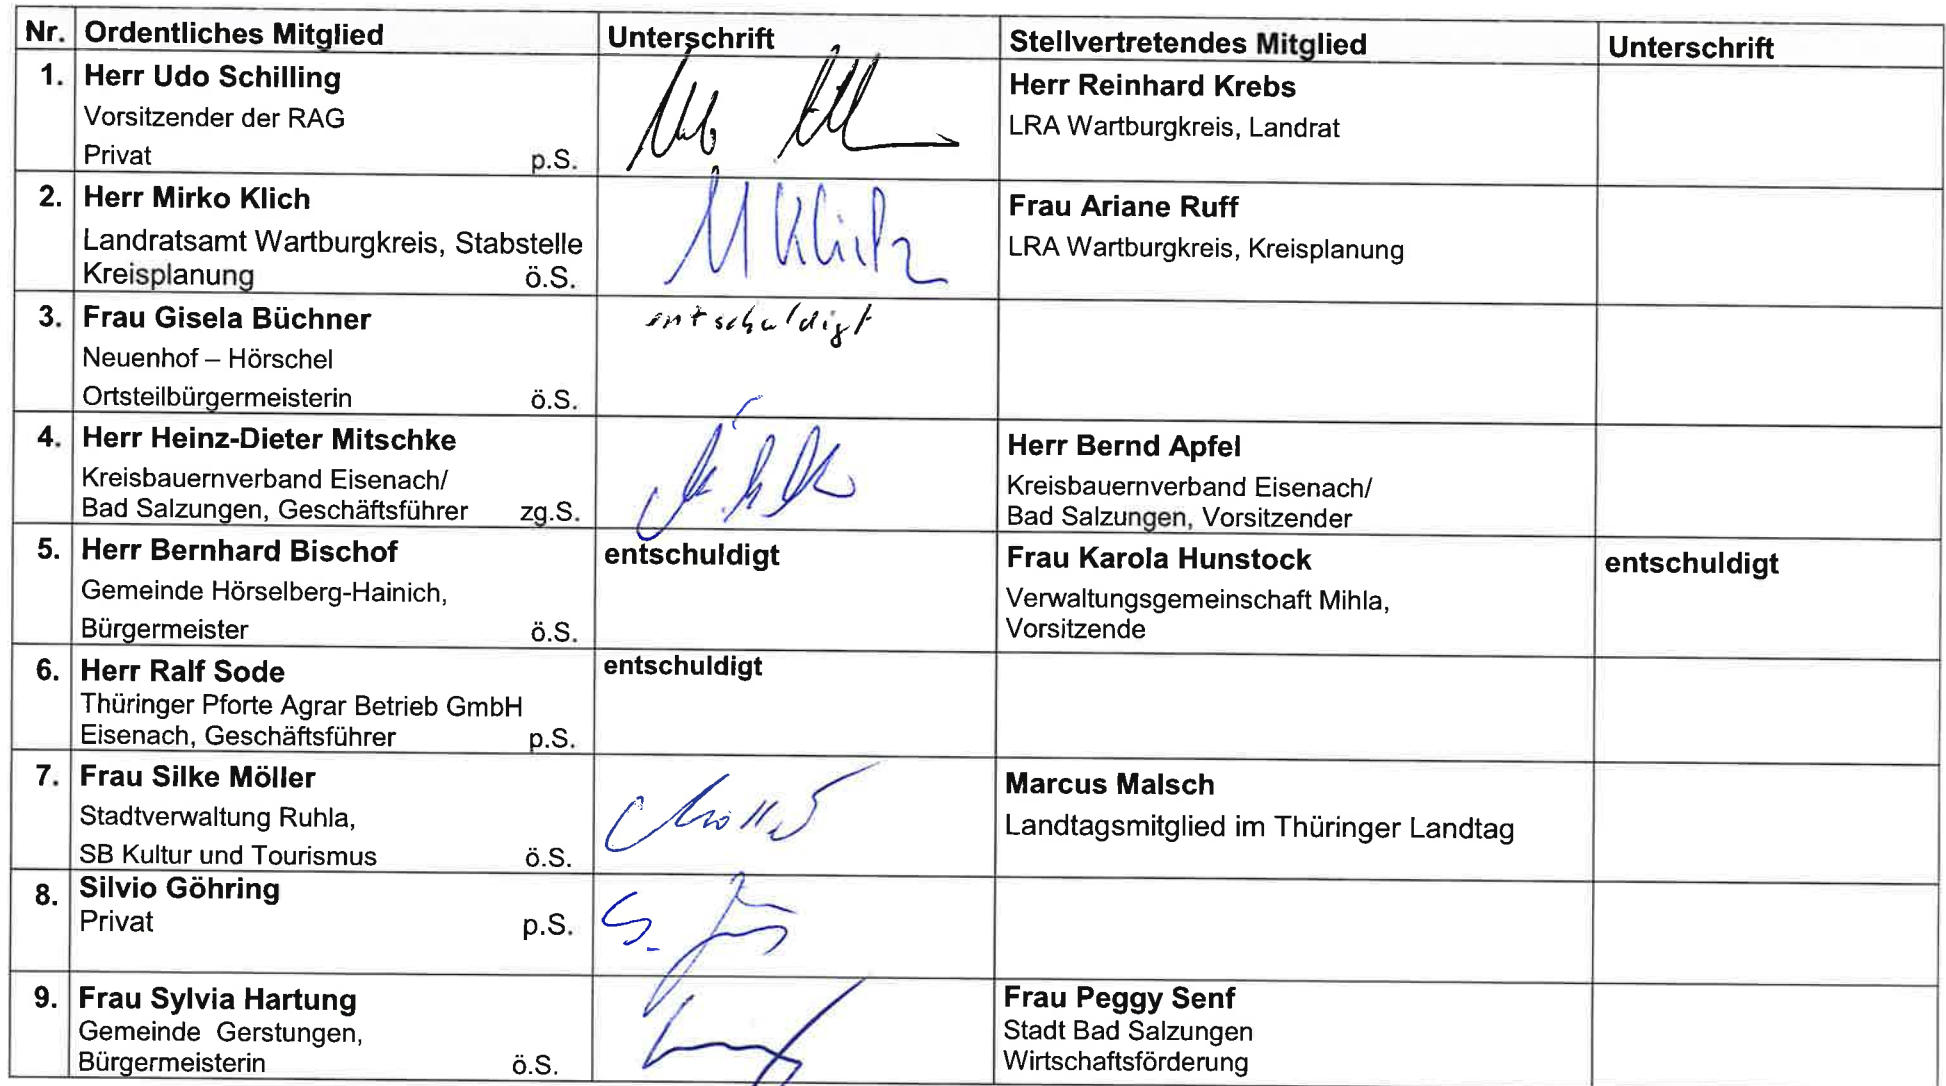 Nr. Ordentliches Mitglied Unterschrift Stellvertretendes Mitglied Unterschrift
1. Herr Udo Schilling
Vorsitzender der RAG
Privat p.S.
Herr Reinhard Krebs
LRA Wartburgkreis, Landrat
2. Herr Mirko Klich
Landratsamt Wartburgkreis, Stabstelle
Kreisplanung ö.S.
Frau Ariane Ruff
LRA Wartburgkreis, Kreisplanung
3. Frau Gisela Büchner
Neuenhof – Hörschel
Ortsteilbürgermeisterin ö.S.
entschuldigt
4. Herr Heinz-Dieter Mitschke
Kreisbauernverband Eisenach/
Bad Salzungen, Geschäftsführer zg.S.
Herr Bernd Apfel
Kreisbauernverband Eisenach/
Bad Salzungen, Vorsitzender
5. Herr Bernhard Bischof
Gemeinde Hörselberg-Hainich,
Bürgermeister ö.S.
entschuldigt
Frau Karola Hunstock
Verwaltungsgemeinschaft Mihla,
Vorsitzende
entschuldigt
6. Herr Ralf Sode
Thüringer Pforte Agrar Betrieb GmbH
Eisenach, Geschäftsführer p.S.
entschuldigt
7. Frau Silke Möller
Stadtverwaltung Ruhla,
SB Kultur und Tourismus ö.S.
Marcus Malsch
Landtagsmitglied im Thüringer Landtag
8. Silvio Göhring
Privat p.S.
9. Frau Sylvia Hartung
Gemeinde Gerstungen,
Bürgermeisterin ö.S.
Frau Peggy Senf
Stadt Bad Salzungen
Wirtschaftsförderung